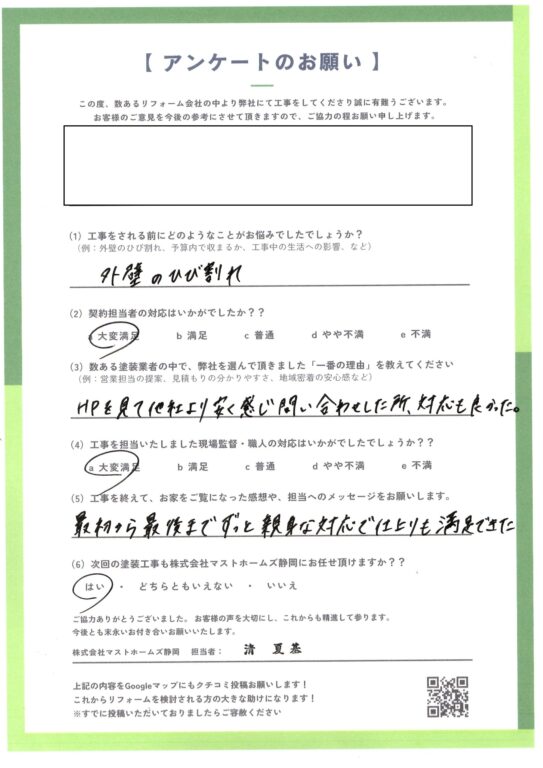 【 アンケートのお願い 】
この度、数あるリフォーム会社の中より弊社にて工事をしてくださり誠に有難うございます。
お客様のご意見を今後の参考にさせて頂きますので、ご協力の程お願い申し上げます。
(1) 工事をされる前にどのようなことがお悩みでしたでしょうか？
(例：外壁のひび割れ、予算内で収まるか、工事中の生活への影響、など)
外壁のひび割れ
(2) 契約担当者の対応はいかがでしたか？？
a 大変満足 b 満足 c 普通 d やや不満 e 不満
(3) 数ある塗装業者の中で、弊社を選んで頂きました「一番の理由」を教えてください
(例：営業担当の提案、見積もりの分かりやすさ、地域密着の安心感など)
HPを見て他社より安く感じ問い合わせした所、対応も良かった。
(4) 工事を担当いたしました現場監督・職人の対応はいかがでしたでしょうか？
a 大変満足 b 満足 c 普通 d やや不満 e 不満
(5) 工事を終えて、お家をご覧になった感想や、担当へのメッセージをお願いします。
最初から最後までずっと親身な対応で仕上りも満足できた
(6) 次回の塗装工事も株式会社マストホームズ静岡にお任せ頂けますか？？
はい ・ どちらともいえない ・ いいえ
ご協力ありがとうございました。お客様の声を大切にし、これからも精進して参ります。
今後とも末永いお付き合いお願いいたします。
株式会社マストホームズ静岡 担当者： 清 夏基
上記の内容をGoogleマップにもクチコミ投稿お願いします！
これからリフォームを検討される方の大きな助けになります！
※すでに投稿いただいておりましたらご容赦ください